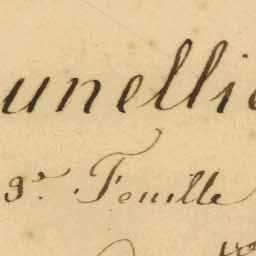 unellie
9.e Feuille